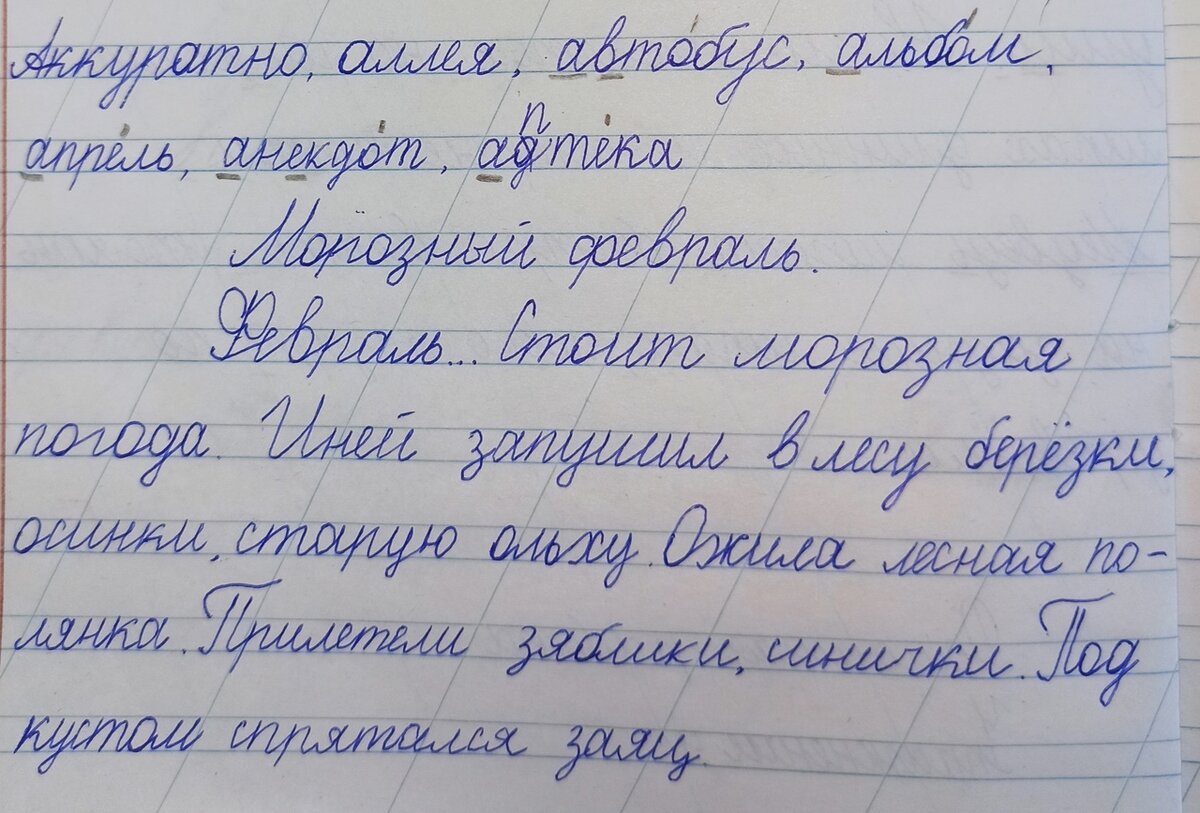 Аккуратно, аллея, автобус, альбом,
апрель, анекдот, аптека
Морозный февраль.
Февраль... Стоит морозная
погода. Иней запушил в лесу берёзки,
осинки, старую ольху. Ожила лесная по-
лянка. Прилетели зяблики, синички. Под
кустом спрятался заяц.